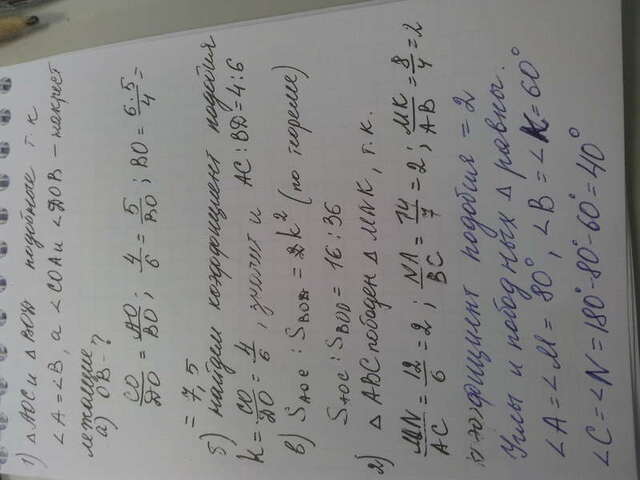 1) △ AOC и △ BOD подобные т.к
∠A=∠B, а ∠COA и ∠DOB – накрест
лежащие
а) OB-?
CO/DO = AO/BO; 4/6 = 5/BO; BO = 6·5/4 =
= 7,5
б) найдем коэффициент подобия
k = CO/DO = 4/6, значит и AC:BD=4:6
в) S AOC : S BOD = k² (по теореме)
S AOC : S BOD = 16:36
2) △ ABC подобен △ MNK, т.к.
MN/AC = 12/6 = 2; NK/BC = 14/7 = 2; MK/AB = 8/4 = 2
коэффициент подобия = 2
Углы и подобных △ равны.
∠A=∠M= 80°, ∠B=∠K=60°
∠C=∠N=180°-80°-60°=40°